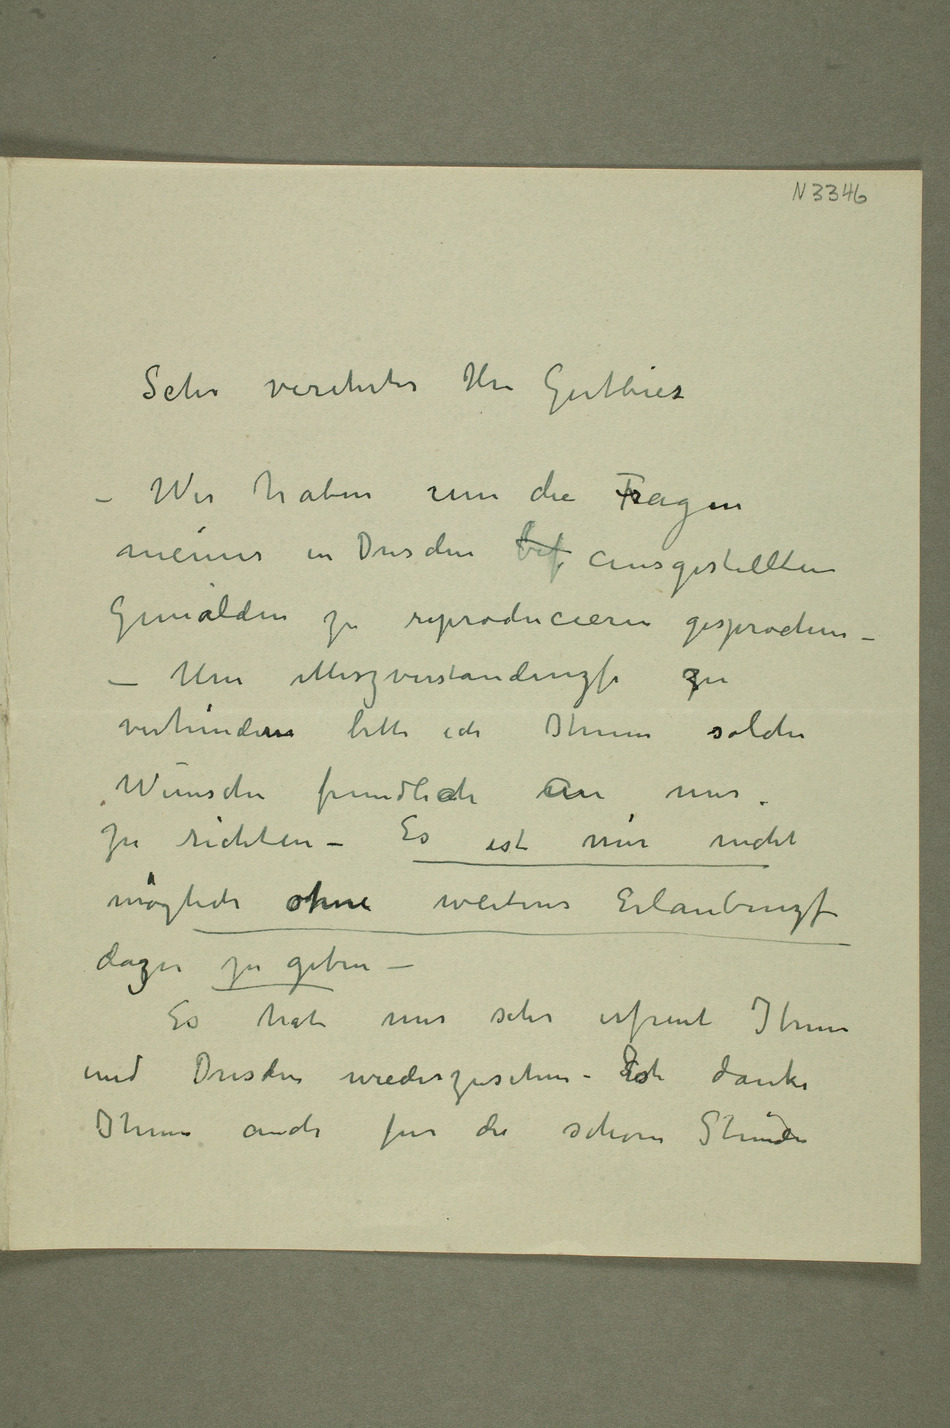 N 3346
Sehr verehrter Herr Gutbier
– Wir haben um die Fragen
meiner in Dresden bef ausgestellten
Gemälden zu reproducieren gesprochen –
– Um Miszverständnisse zu
verhindern bitte ich Ihnen solche
Wünsche freundlich an mir
zu richten – Es ist mir nicht
möglich ohne weiteres Erlaubnisse
dazu zu geben –
Es hat mir sehr erfreut Ihnen
und Dresden wiederzusehen – Ich danke
Ihnen auch für die schöne Stunde